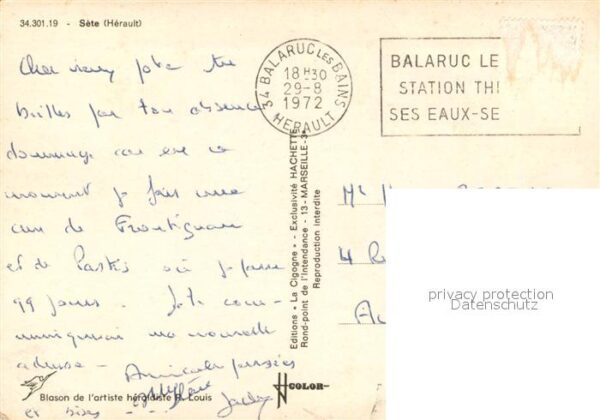 34.301.19 - Sète (Hérault)
Cher vieux pote tu
brilles par ton absence
dommage car en ce
moment je fais une
cure de Frontignan
et de Pastis où je passe
99 jours. Je te com-
muniquerai ma nouvelle
adresse - Amicales pensées
et bises ---
34 BALARUC LES BAINS
18 H30
29-8
1972
HERAULT
BALARUC LE
STATION THI
SES EAUX-SE
Editions "La Cigogne" - Exclusivité HACHETTE
Rond-point de l'Intendance - 13 - MARSEILLE-3e
Reproduction interdite
Mr
4 R
privacy protection
Datenschutz
COLOR
Blason de l'artiste héraldiste R. Louis